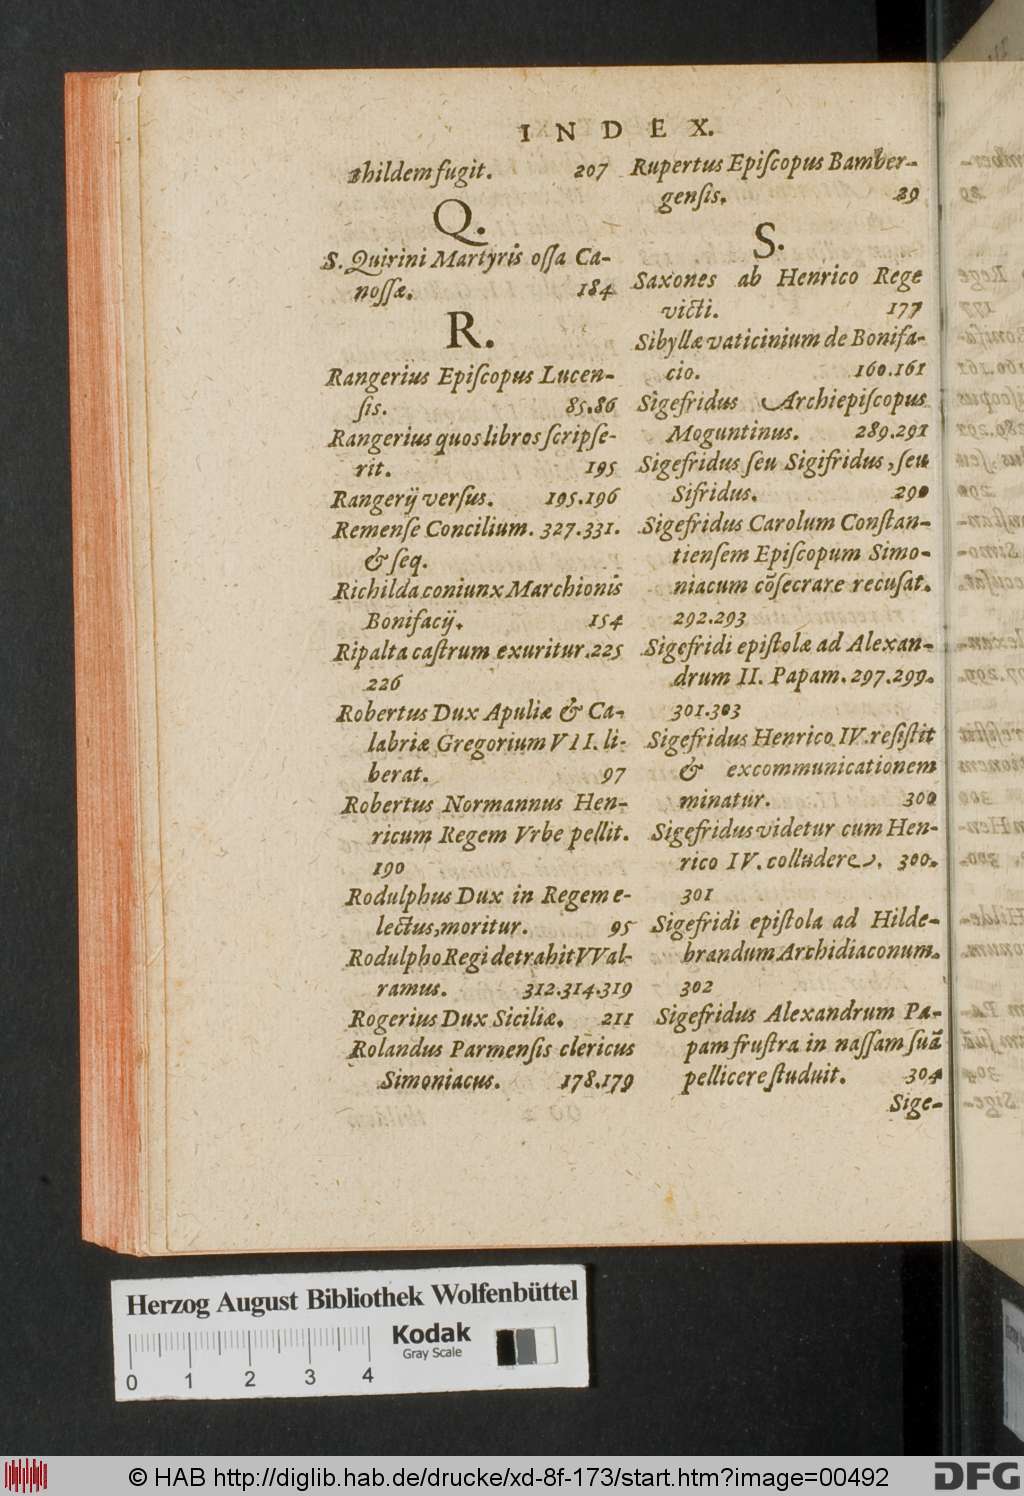 INDEX.
thildem fugit. 207
Q.
S. Quirini Martyris oſſa Ca-
noſſæ. 184
R.
Rangerius Epiſcopus Lucen-
ſis. 85.86
Rangerius quos libros ſcripſe-
rit. 195
Rangerij verſus. 195.196
Remenſe Concilium. 327.331.
& ſeq.
Richilda coniunx Marchionis
Bonifacij. 154
Ripalta caſtrum exuritur. 225
226
Robertus Dux Apuliæ & Ca-
labriæ Gregorium VII. li-
berat. 97
Robertus Normannus Hen-
ricum Regem Vrbe pellit.
190
Rodulphus Dux in Regem e-
lectus, moritur. 95
Rodulpho Regi detrahit VVal-
ramus. 312.314.319
Rogerius Dux Siciliæ. 211
Rolandus Parmenſis clericus
Simoniacus. 178.179
Rupertus Epiſcopus Bamber-
genſis. 29
S.
Saxones ab Henrico Rege
victi. 177
Sibyllæ vaticinium de Bonifa-
cio. 160.161
Sigefridus Archiepiſcopus
Moguntinus. 289.291
Sigefridus ſeu Sigifridus, ſeu
Sifridus. 290
Sigefridus Carolum Conſtan-
tienſem Epiſcopum Simo-
niacum cõſecrare recuſat.
292.293
Sigefridi epiſtolæ ad Alexan-
drum II. Papam. 297.299.
301.303
Sigefridus Henrico IV. reſiſtit
& excommunicationem
minatur. 300
Sigefridus videtur cum Hen-
rico IV. colludere. 300.
301
Sigefridi epiſtola ad Hilde-
brandum Archidiaconum.
302
Sigefridus Alexandrum Pa-
pam fruſtra in naſſam ſuã
pellicere ſtuduit. 304
Sige-
Herzog August Bibliothek Wolfenbüttel
Kodak
Gray Scale
0 1 2 3 4
© HAB http://diglib.hab.de/drucke/xd-8f-173/start.htm?image=00492
DFG